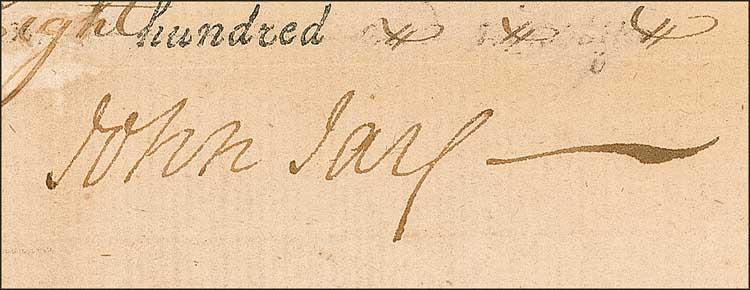 eight hundred
John Jay